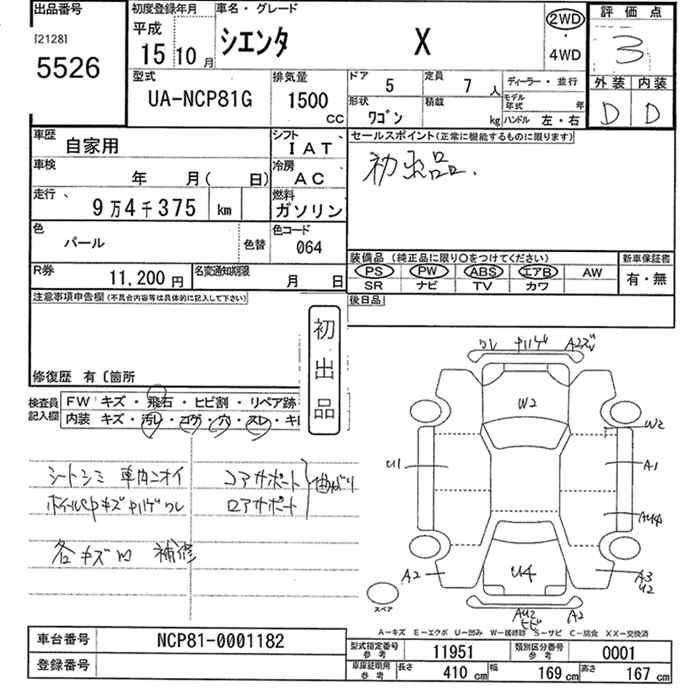 出品番号
[2128]
5526
初度登録年月
平成
15 10 月
車名・グレード
シエンタ X
2WD
・
4WD
評価点
3
外装 内装
D D
型式
UA-NCP81G
排気量
1500
CC
ドア 5
定員 7 人
ディーラー・並行
形状 ワゴン
積載 kg
モデル年式 年
ハンドル 左・右
車歴 自家用
シフト IAT
セールスポイント(正常に機能するものに限ります)
初出品.
車検 年 月( 日)
冷房 AC
走行 9万4千375 km
燃料 ガソリン
色 パール 色替
色コード 064
装備品(純正品に限り○をつけてください)
PS PW ABS エアB AW
SR ナビ TV カワ
新車保証書
有・無
R券 11,200円
名変通知期限 月 日
後日品
注意事項申告欄(不具合内容等は具体的に記入して下さい)
初出品
修復歴 有〔箇所
検査員記入欄
FW キズ・飛石・ヒビ割・リペア跡
内装 キズ・汚レ・コゲ・穴・スレ・キレ
シートシミ 車内ニオイ
コアサポート
ロアサポート
曲がり
各キズ凹 補修
ワレ ナハゲ
W2
W2
U1
A1
A2
U4
A3
U2
A2
ヒビ
スペア
A-キズ E-エクボ U-凹み W-補修跡 S-サビ C-腐食 XX-交換済
車台番号 NCP81-0001182
登録番号
型式指定番号参考 11951
類別区分番号参考 0001
車庫証明用参考 長さ 410 cm 幅 169 cm 高さ 167 cm